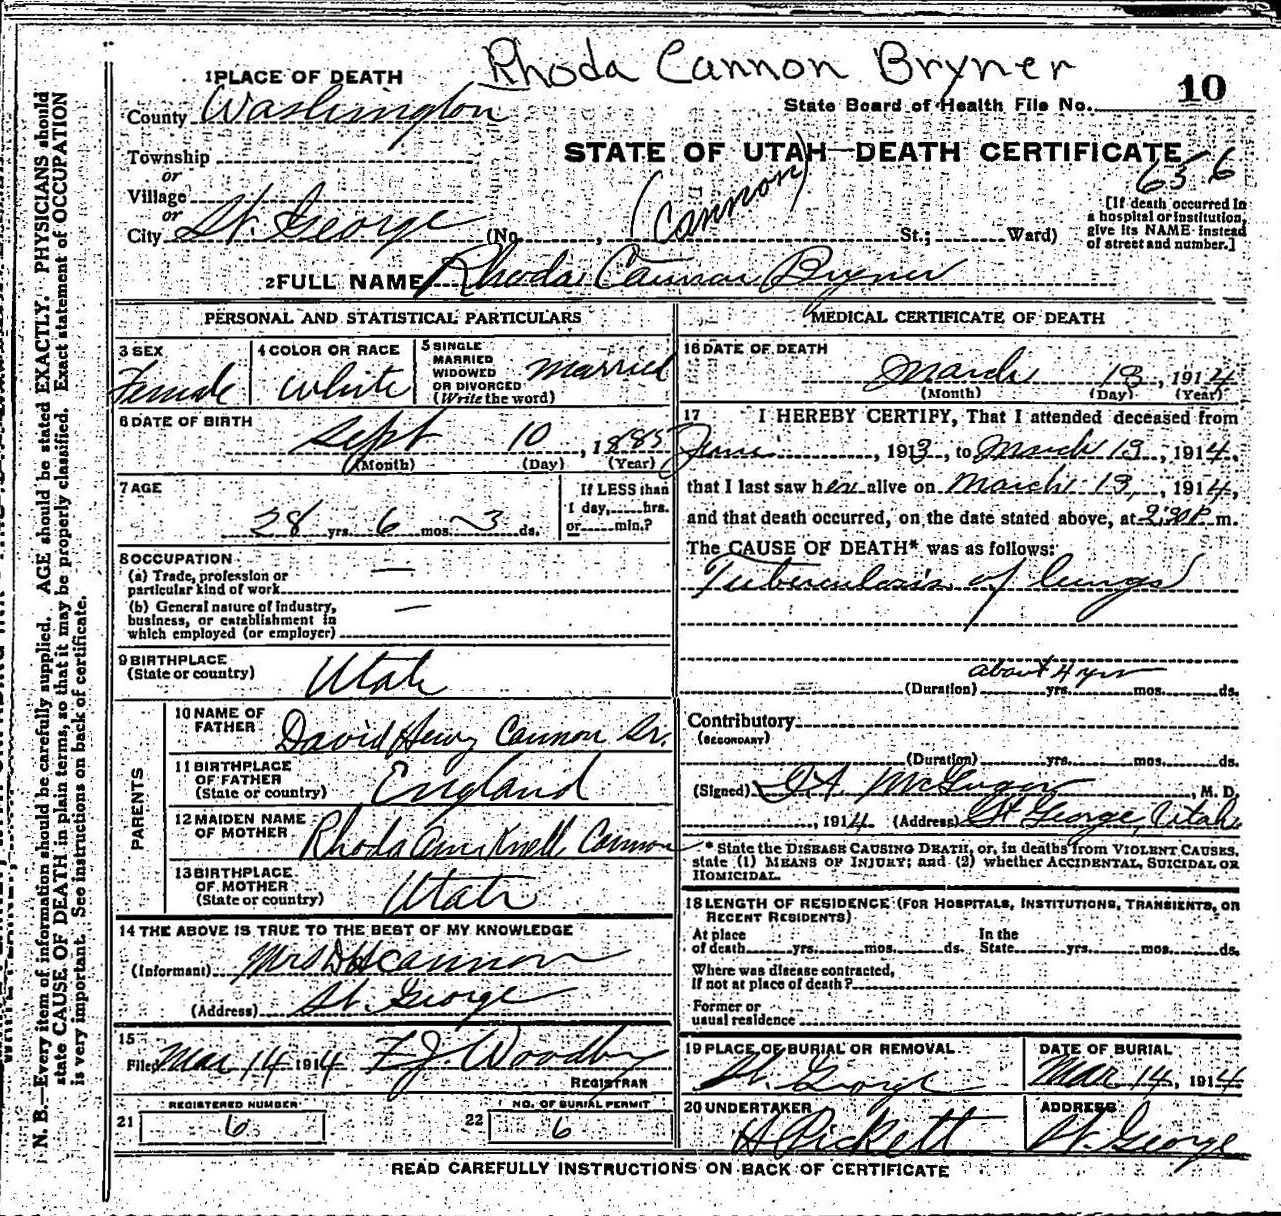 Rhoda Cannon Bryner
1 PLACE OF DEATH
County Washington
State Board of Health File No. 10
Township
or
Village
or
City St. George (No. , St.; Ward)
STATE OF UTAH—DEATH CERTIFICATE
(Cannon)
[If death occurred in
a hospital or institution,
give its NAME instead
of street and number.]
2 FULL NAME Rhoda Cannon Bryner
PERSONAL AND STATISTICAL PARTICULARS
3 SEX
Female
4 COLOR OR RACE
White
5 SINGLE
MARRIED
WIDOWED
OR DIVORCED
(Write the word)
married
6 DATE OF BIRTH
Sept 10, 1885
(Month) (Day) (Year)
7 AGE
28 yrs. 6 mos. 3 ds.
If LESS than
1 day, hrs.
or min.?
8 OCCUPATION
(a) Trade, profession or
particular kind of work —
(b) General nature of industry,
business, or establishment in
which employed (or employer) —
9 BIRTHPLACE
(State or country) Utah
PARENTS
10 NAME OF
FATHER David Henry Cannon Sr.
11 BIRTHPLACE
OF FATHER
(State or country) England
12 MAIDEN NAME
OF MOTHER Rhoda Ann Knell Cannon
13 BIRTHPLACE
OF MOTHER
(State or country) Utah
14 THE ABOVE IS TRUE TO THE BEST OF MY KNOWLEDGE
(Informant) Mrs D H Cannon
(Address) St. George
15
Filed Mar 14 1914 F J Woodbury
REGISTRAR
21 REGISTERED NUMBER
6
22 NO. OF BURIAL PERMIT
6
MEDICAL CERTIFICATE OF DEATH
16 DATE OF DEATH
March 13, 1914
(Month) (Day) (Year)
17 I HEREBY CERTIFY, That I attended deceased from
, 1913, to March 13, 1914,
that I last saw her alive on March 13, 1914,
and that death occurred, on the date stated above, at m.
The CAUSE OF DEATH* was as follows:
Tuberculosis of lungs
about 4 yrs
(Duration) yrs. mos. ds.
Contributory
(SECONDARY)
(Duration) yrs. mos. ds.
(Signed) McGregor, M. D.
, 1914 (Address) St George, Utah
* State the DISEASE CAUSING DEATH, or, in deaths from VIOLENT CAUSES,
state (1) MEANS OF INJURY; and (2) whether ACCIDENTAL, SUICIDAL OR
HOMICIDAL.
18 LENGTH OF RESIDENCE (FOR HOSPITALS, INSTITUTIONS, TRANSIENTS, OR
RECENT RESIDENTS)
At place
of death yrs. mos. ds.
In the
State yrs. mos. ds.
Where was disease contracted,
If not at place of death?
Former or
usual residence
19 PLACE OF BURIAL OR REMOVAL
St. George
DATE OF BURIAL
Mar 14, 1914
20 UNDERTAKER
H Pickett
ADDRESS
St. George
READ CAREFULLY INSTRUCTIONS ON BACK OF CERTIFICATE
N. B.—Every item of information should be carefully supplied. AGE should be stated EXACTLY. PHYSICIANS should
state CAUSE OF DEATH in plain terms, so that it may be properly classified. Exact statement of OCCUPATION
is very important. See instructions on back of certificate.